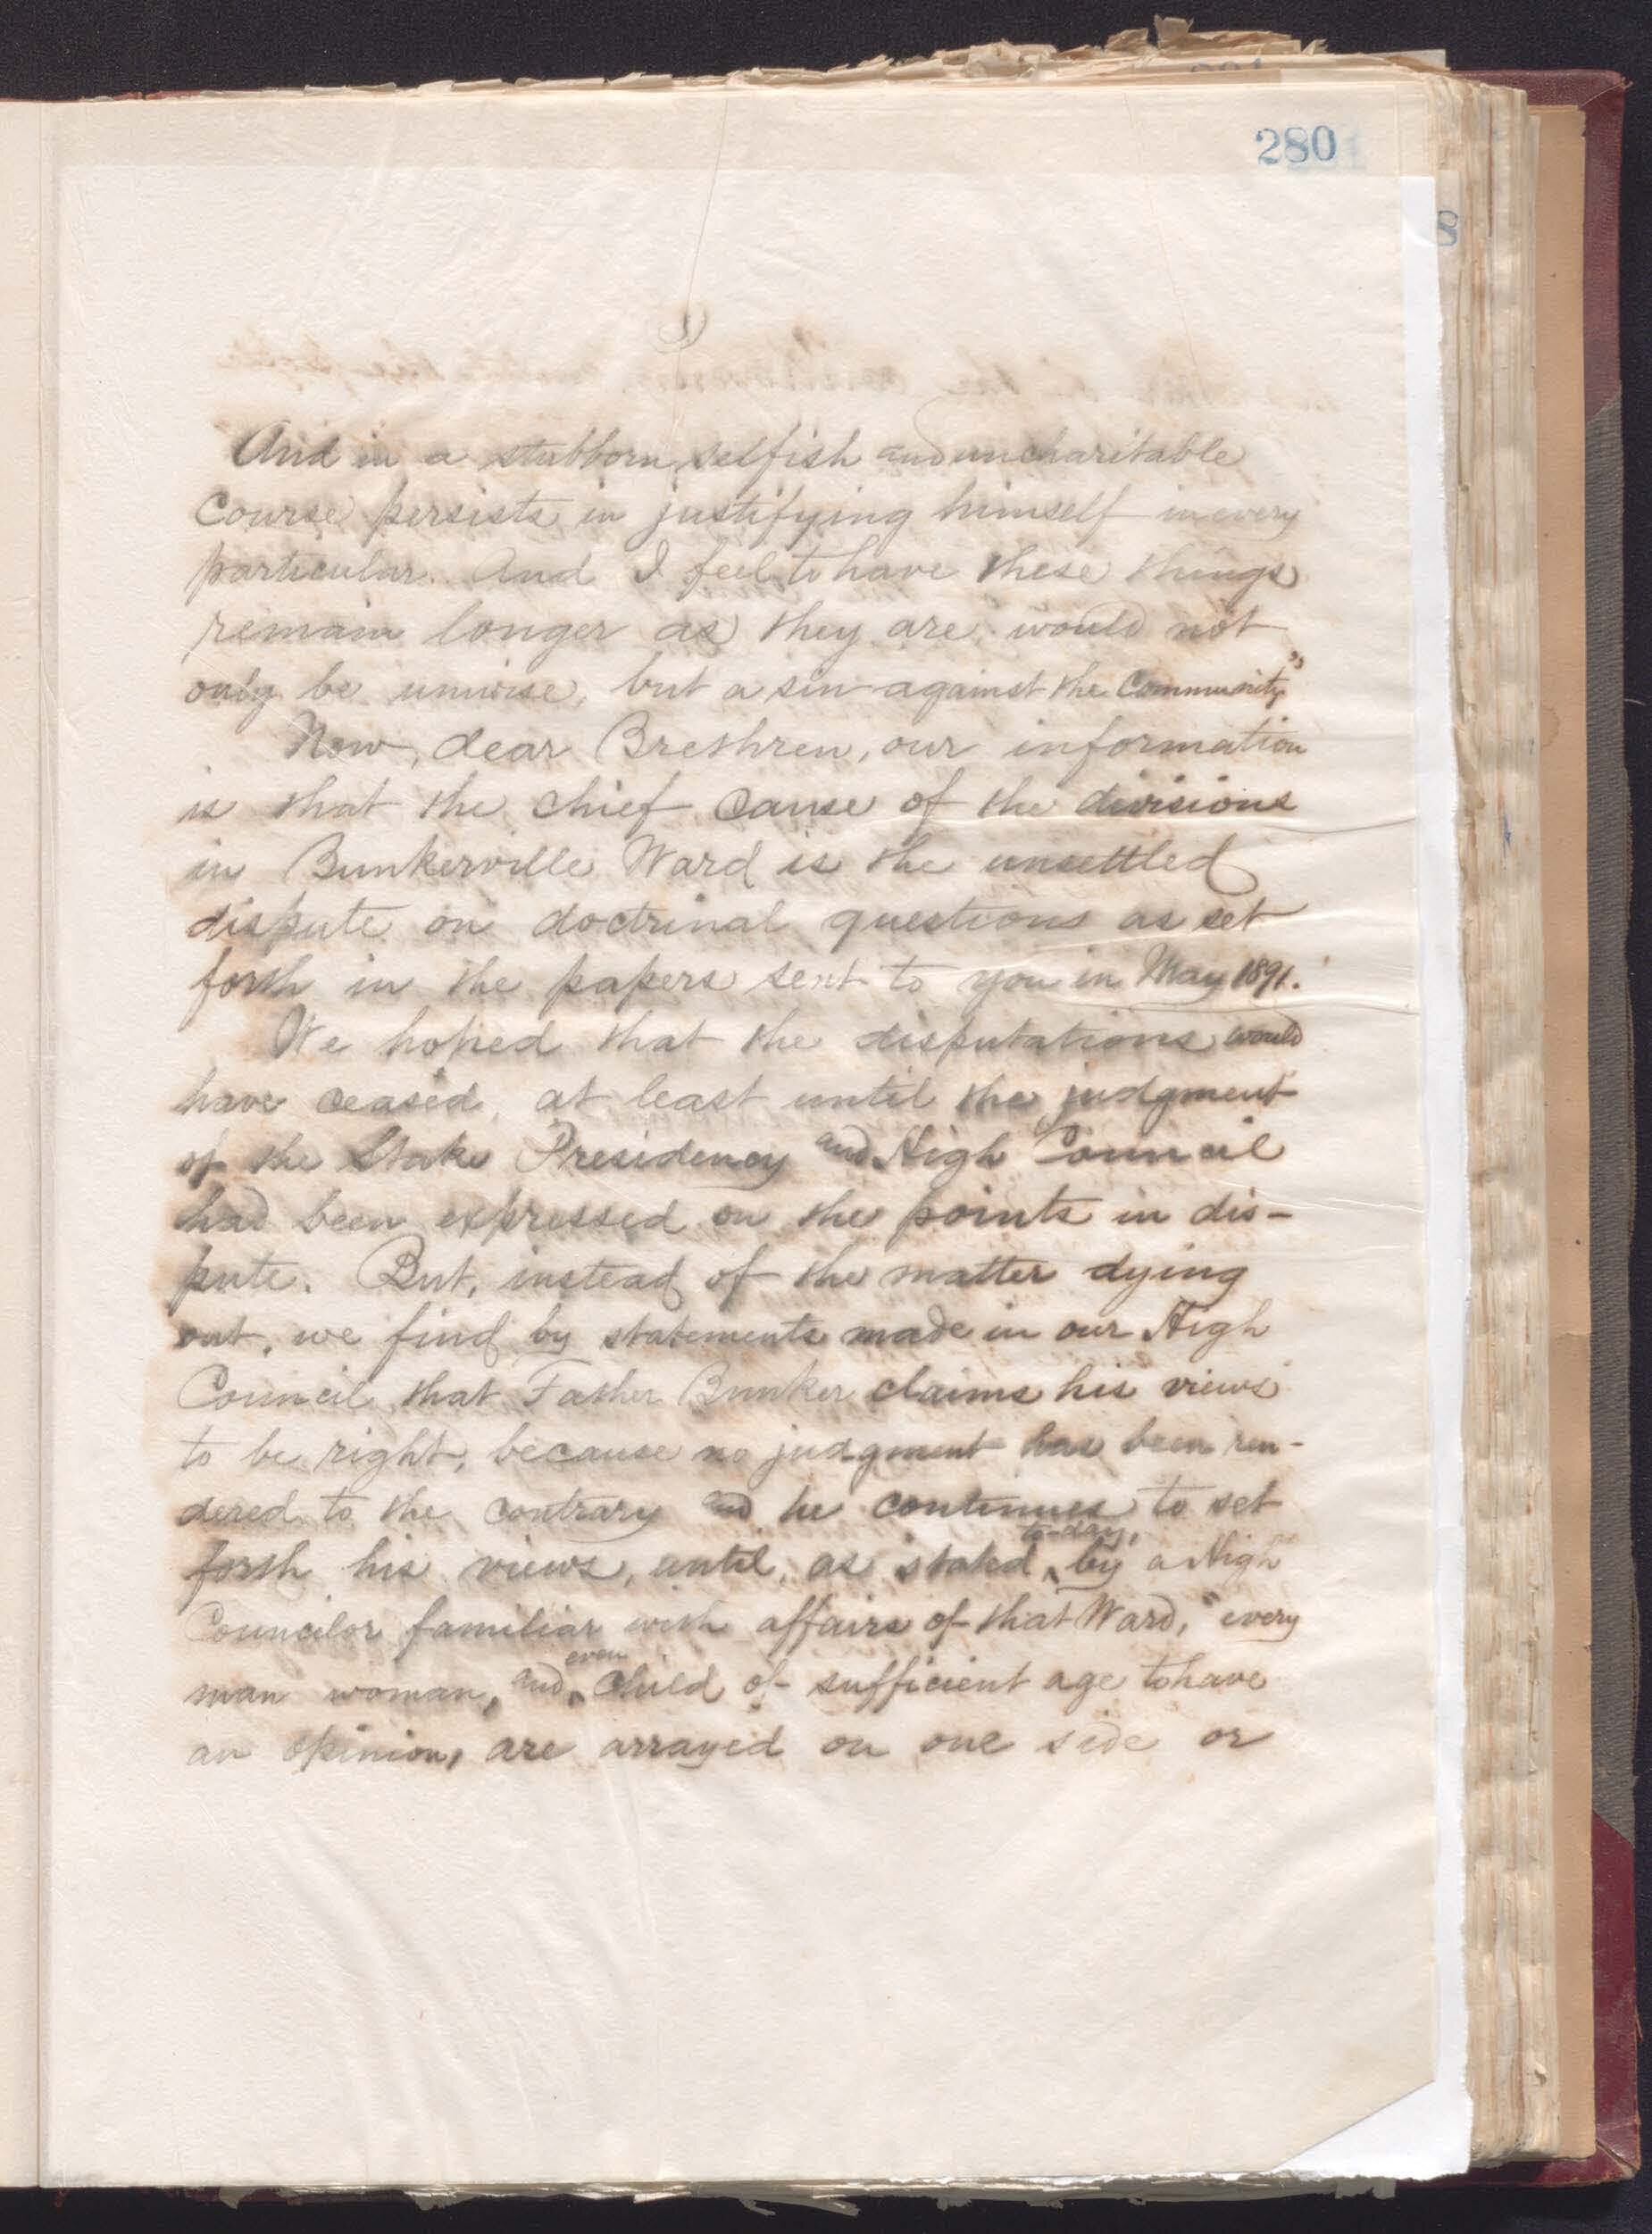 280
And in a stubborn, selfish and uncharitable
Course persists in justifying himself in every
particular. And I feel to have these things
remain longer as they are would not
only be unwise, but a sin against the Community."
Now, dear Brethren, our information
is that the chief cause of the divisions
in Bunkerville Ward is the unsettled
dispute on doctrinal questions as set
forth in the papers sent to you in May 1891.
We hoped that the disputations would
have ceased, at least until the judgment
of the Stake Presidency and High Council
had been expressed on the points in dis-
pute. But, instead of the matter dying
out, we find by statements made in our High
Council that Father Bunker claims his views
to be right, because no judgment has been ren-
dered to the contrary and he continues to set
forth his views, until, as stated to-day, by a High
Councilor familiar with affairs of that Ward, "every
man woman, and even child of sufficient age to have
an opinion, are arrayed on one side or